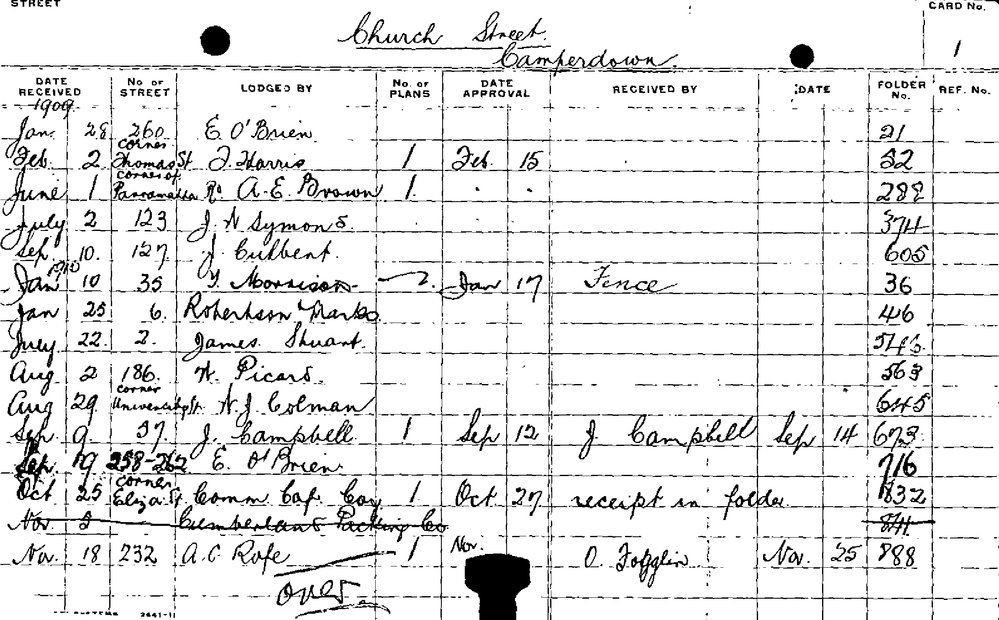 STREET
CARD No.
Church Street.
Camperdown.
1
DATE RECEIVED No. OF STREET LODGED BY No. OF PLANS DATE APPROVAL RECEIVED BY DATE FOLDER No. REF. No.
1909
Jan. 28 260 E. O'Brien 21
Feb. 2 corner Thomas St J. Harris 1 Feb. 15 32
June 1 corner of Parramatta Rd A. E. Brown 1 . . 288
July 2 123 J. N Symons 374
Sep. 10. 127. J. Cuthbert. 605
1910
Jan 10 35 Morrison 2. Jan 17 Fence 36
Jan 25 6. Robertson & Marks. 46
July 22. 2. James Stuart. 543.
Aug 2 186. W. Picard. 563
Aug 29 corner University St N. J. Colman 645
Sep 9 37 J. Campbell 1 Sep 12 J. Campbell Sep 14 673
Sep. 19 258-262 E. O'Brien 716
Oct 25 corner Eliza St Comm Caf. Coy 1 Oct 27 receipt in folder 832
Nov. Cumberland Packing Co 841
Nov. 18 232 A. C. Rofe 1 Nov. O. Nov. 25 888
over.
2441-11